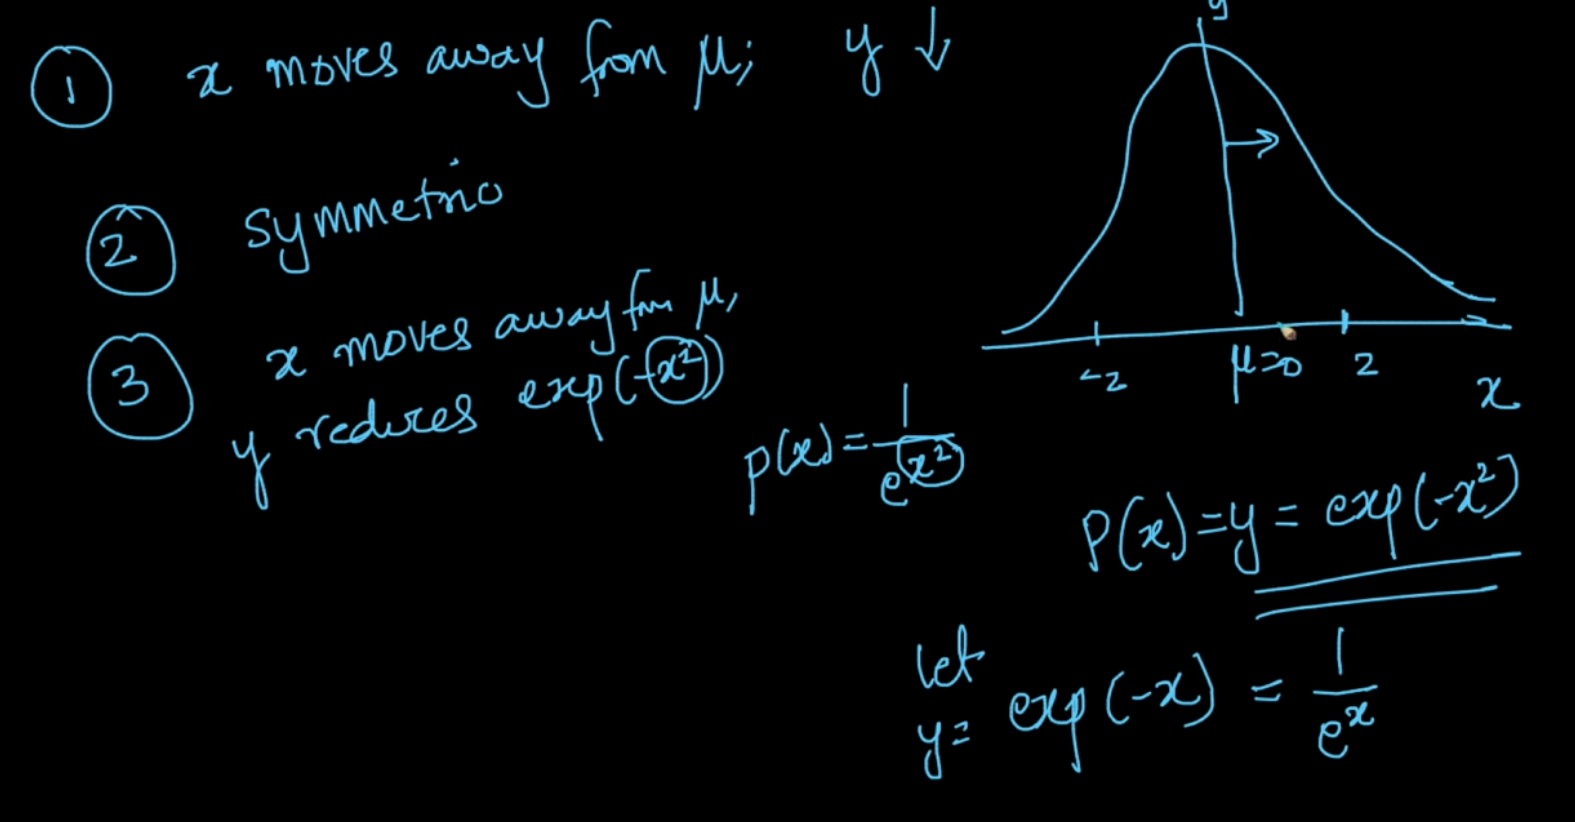 ① x moves away from μ; y ↓
② Symmetric
③ x moves away from μ,
y reduces exp(-x²)
y
-2 μ=0 2
x
p(x) = 1/e^x²
P(x) = y = exp(-x²)
let
y = exp(-x) = 1/e^x